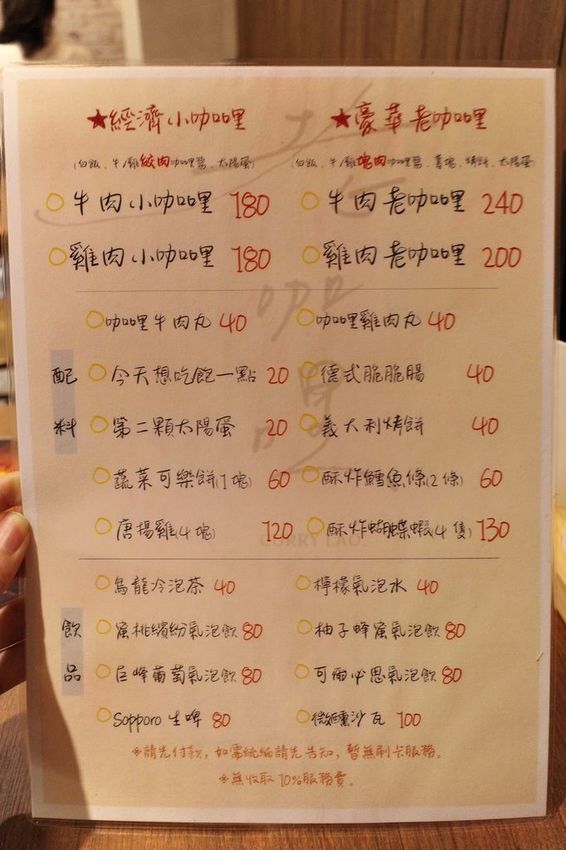 ★經濟小咖哩 ★豪華老咖哩
(白飯、牛/雞絞肉咖哩醬、太陽蛋) (白飯、牛/雞塊肉咖哩醬、薯塊、烤餅、太陽蛋)
牛肉小咖哩 180 牛肉老咖哩 240
雞肉小咖哩 180 雞肉老咖哩 200
咖哩牛肉丸 40 咖哩雞肉丸 40
配料
今天想吃飽一點 20 德式脆脆腸 40
第二顆太陽蛋 20 義大利烤餅 40
蔬菜可樂餅(1塊) 60 酥炸鱈魚條(2條) 60
唐揚雞(4塊) 120 酥炸蝴蝶蝦(4隻) 130
CURRY LAO
烏龍冷泡茶 40 檸檬氣泡水 40
飲品
蜜桃繽紛氣泡飲 80 柚子蜂蜜氣泡飲 80
巨峰葡萄氣泡飲 80 可爾必思氣泡飲 80
Sapporo 生啤 80 微醺沙瓦 100
※請先付款，如需統編請先告知，暫無刷卡服務。
※無收取10%服務費。